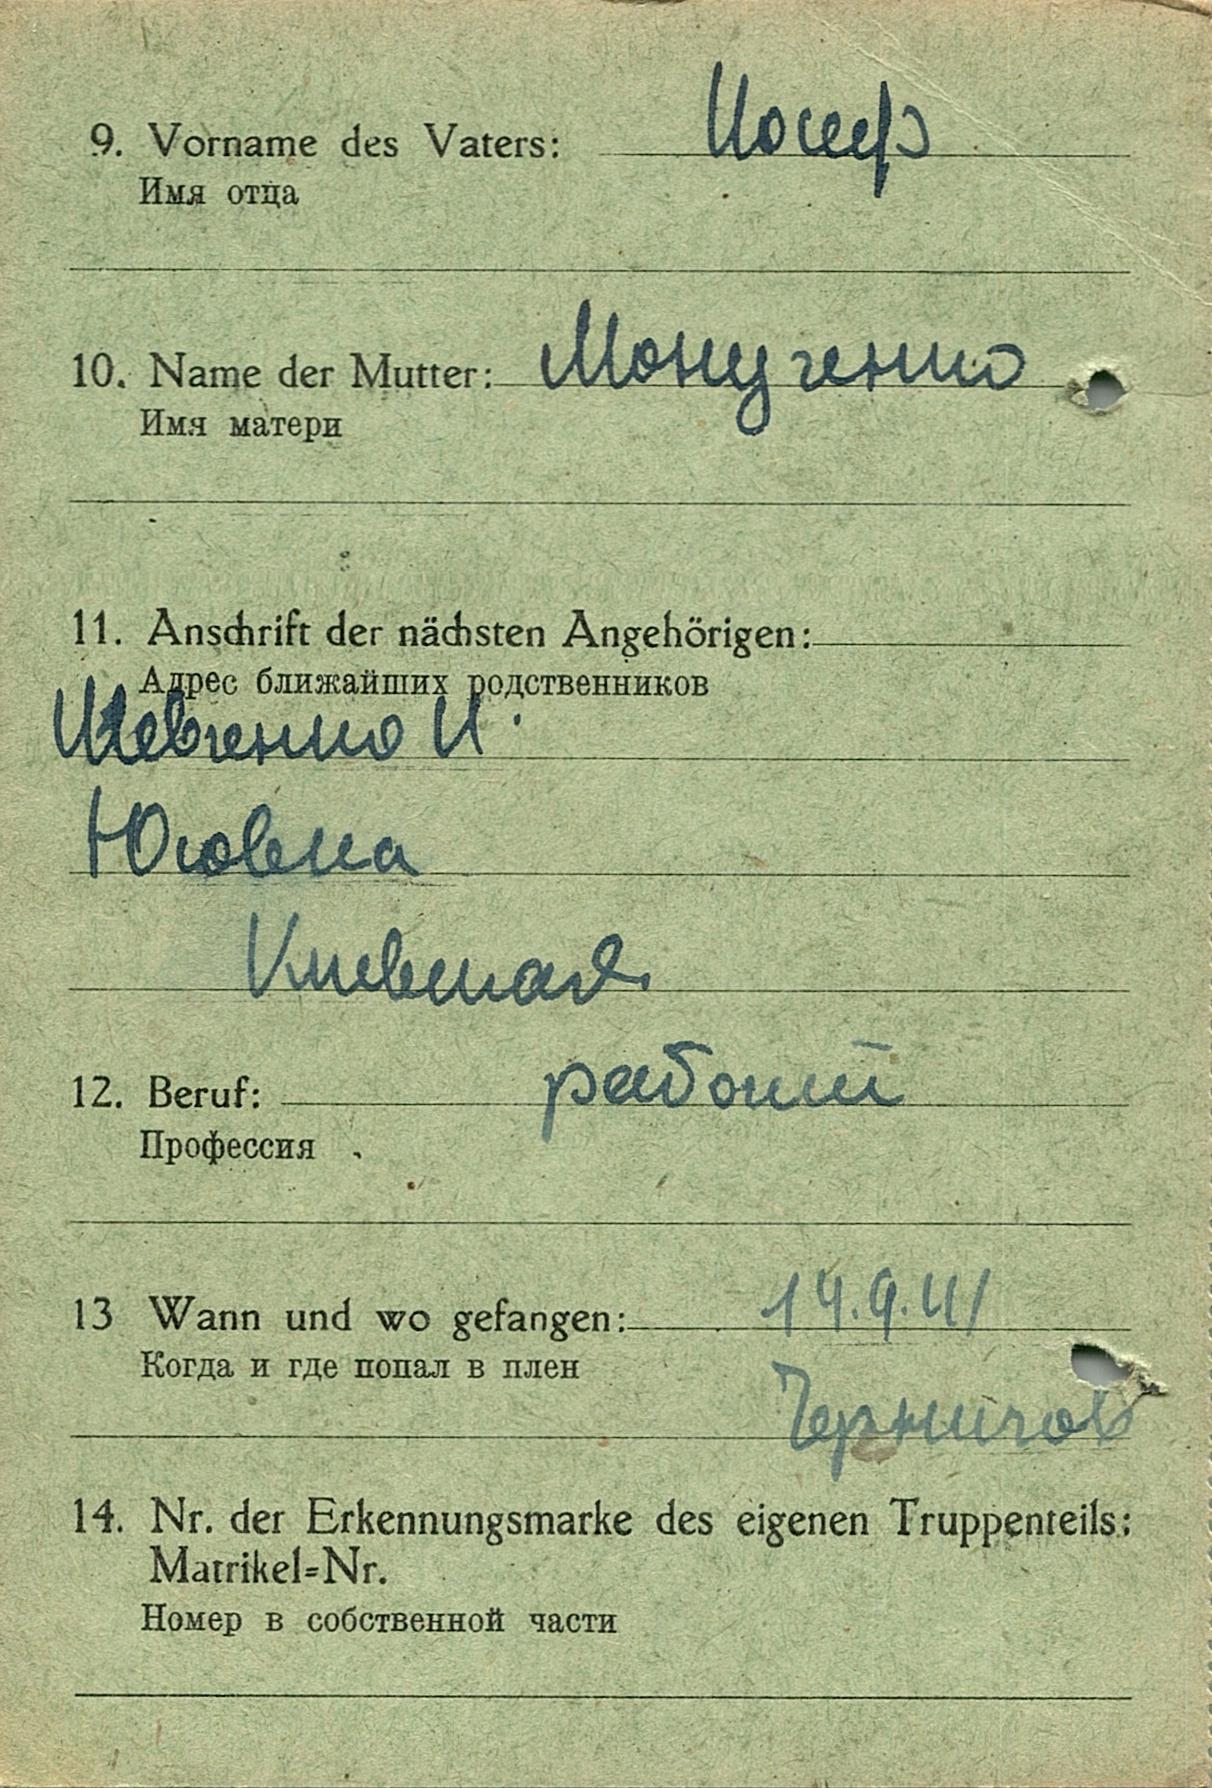 9. Vorname des Vaters: Иосеф
Имя отца
10. Name der Mutter: Монученко
Имя матери
11. Anschrift der nächsten Angehörigen:
Адрес ближайших родственников
Шевченко И
Киевская
12. Beruf: рабочий
Профессия
13 Wann und wo gefangen: 14.9.41
Когда и где попал в плен
Чернигов
14. Nr. der Erkennungsmarke des eigenen Truppenteils:
Matrikel=Nr.
Номер в собственной части